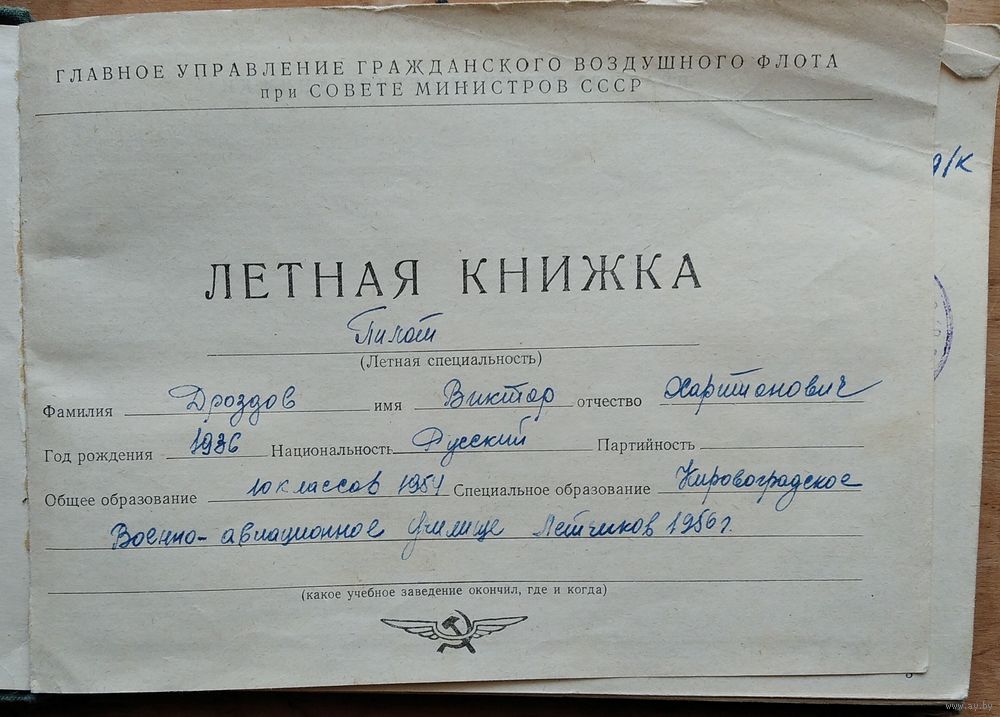 ГЛАВНОЕ УПРАВЛЕНИЕ ГРАЖДАНСКОГО ВОЗДУШНОГО ФЛОТА
при СОВЕТЕ МИНИСТРОВ СССР
д/к
ЛЕТНАЯ КНИЖКА
Пилот
(Летная специальность)
Фамилия Дроздов имя Виктор отчество Харитонович
Год рождения 1936 Национальность Русский Партийность
Общее образование 10 классов 1954 Специальное образование Кировоградское
Военно-авиационное училище Летчиков 1956 г.
(какое учебное заведение окончил, где и когда)
www.ay.by